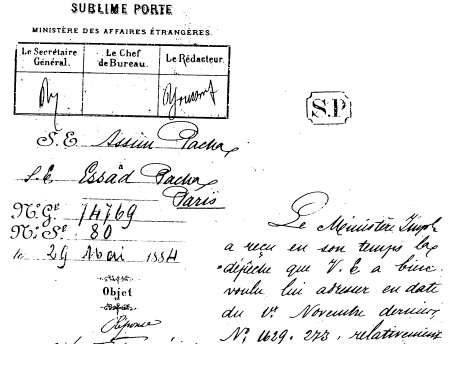 SUBLIME PORTE
MINISTÈRE DES AFFAIRES ÉTRANGÈRES.
Le Secrétaire Général.
Le Chef de Bureau.
Le Rédacteur.
S.P
S. E. Assim Pacha
à
S. E. Essad Pacha
Paris
N° Gl 74769
N° Sl 80
le 29 Mai 1884
Objet
Réponse
Le Ministère Impl
a reçu en son temps la
dépêche que V. E a bien
voulu lui adresser en date
du 1er Novembre dernier,
N° 1629. 273, relativement